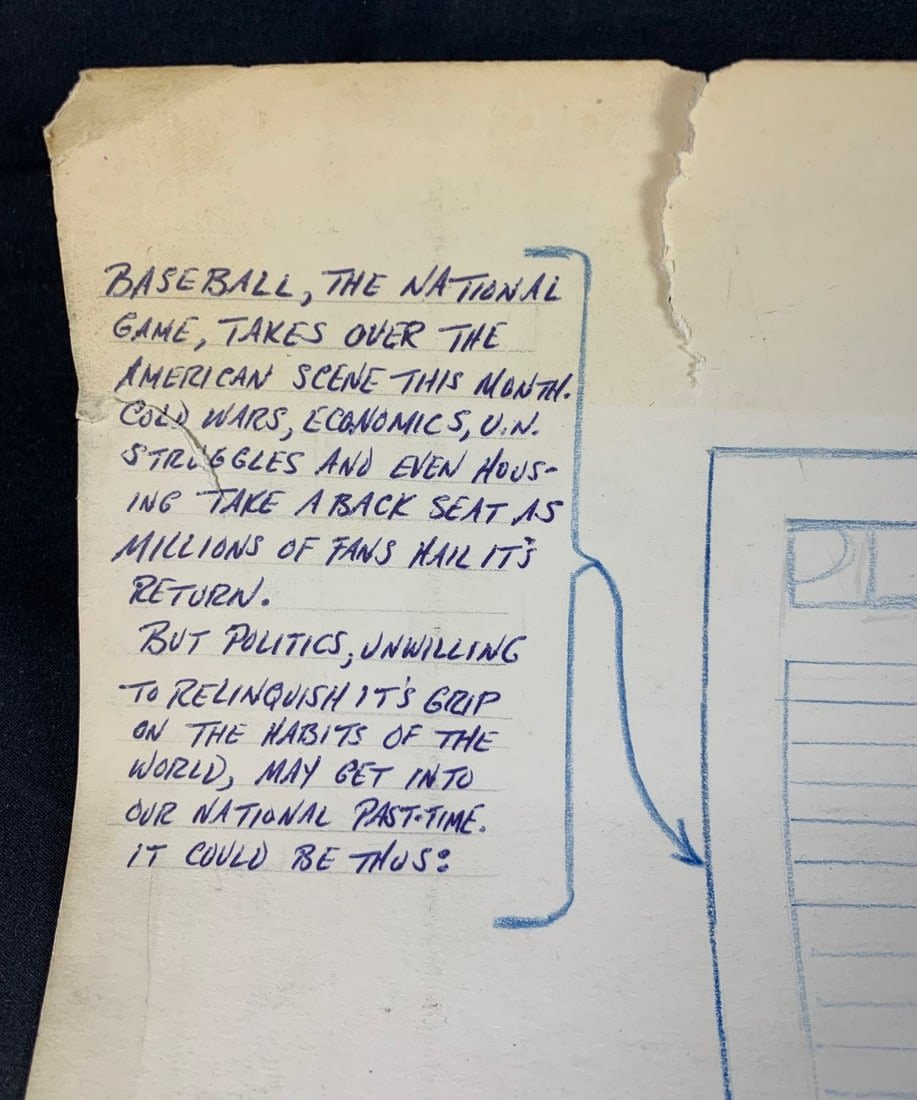 BASEBALL, THE NATIONAL
GAME, TAKES OVER THE
AMERICAN SCENE THIS MONTH.
COLD WARS, ECONOMICS, U.N.
STRUGGLES AND EVEN HOUS-
ING TAKE A BACK SEAT AS
MILLIONS OF FANS HAIL IT'S
RETURN.
BUT POLITICS, UNWILLING
TO RELINQUISH IT'S GRIP
ON THE HABITS OF THE
WORLD, MAY GET INTO
OUR NATIONAL PAST-TIME.
IT COULD BE THUS: